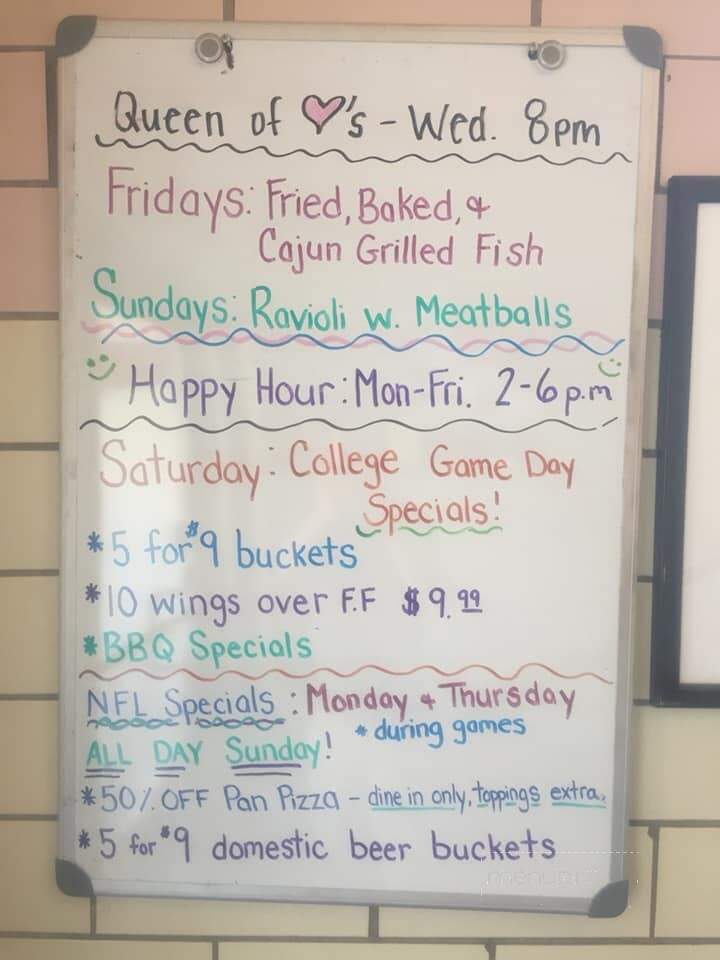 Queen of ♥'s - Wed. 8pm
Fridays: Fried, Baked, &
Cajun Grilled Fish
Sundays: Ravioli w. Meatballs
Happy Hour: Mon-Fri. 2-6 p.m
Saturday: College Game Day
Specials!
*5 for $9 buckets
*10 wings over F.F $9.99
*BBQ Specials
NFL Specials: Monday & Thursday
*during games
ALL DAY Sunday!
*50% OFF Pan Pizza - dine in only, toppings extra.
*5 for $9 domestic beer buckets